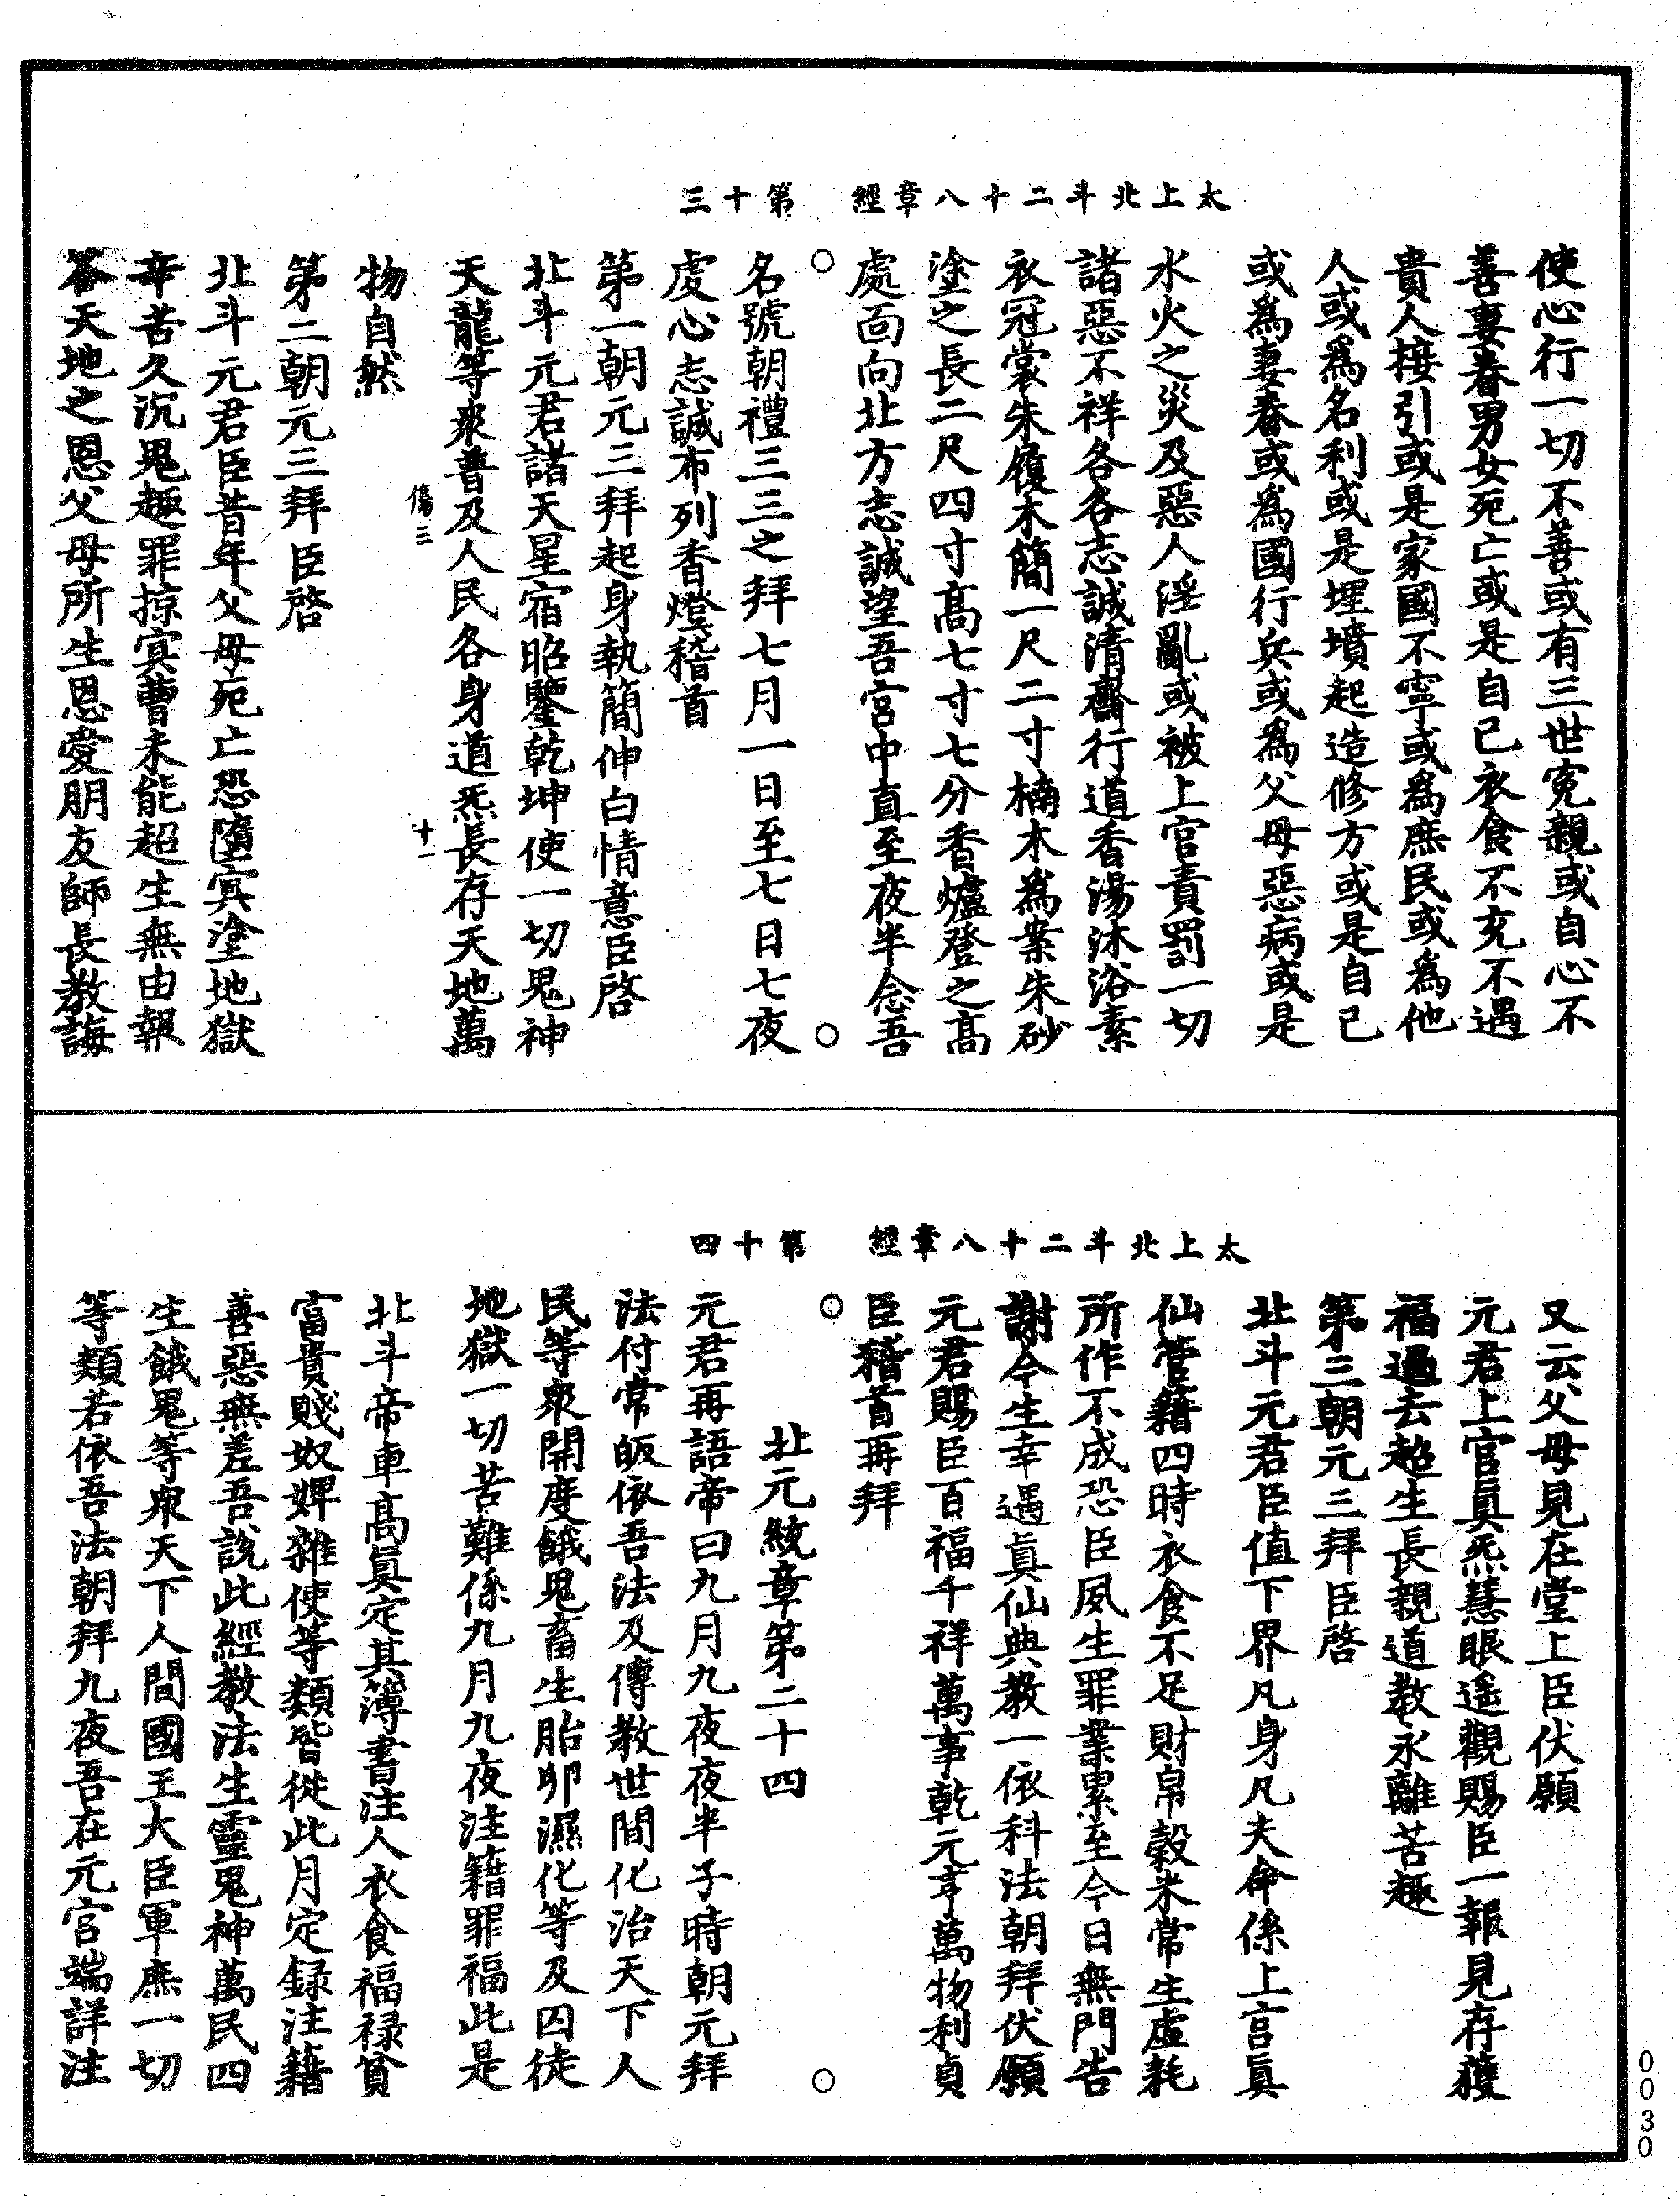 太上北斗二十八章經　第十三
使心行一切不善或有三世寃親或自心不
善妻眷男女死亡或是自己衣食不充不遇
貴人接引或是家國不寧或爲庶民或爲他
人或爲名利或是埋墳起造修方或是自己
或爲妻眷或爲國行兵或爲父母惡病或是
水火之災及惡人淫亂或被上官責罰一切
諸惡不祥各各志誠清齋行道香湯沐浴素
衣冠裳朱履木簡一尺二寸楠木爲案朱砂
塗之長二尺四寸高七寸七分香爐登之高
處面向北方志誠望吾宮中直至夜半念吾
名號朝禮三三之拜七月一日至七日七夜
虔心志誠布列香燈稽首
第一朝元三拜起身執簡伸白情意臣啓
北斗元君諸天星宿昭鑒乾坤使一切鬼神
天龍等衆普及人民各身道炁長存天地萬
傷三　十一
物自然
第二朝元三拜臣啓
北斗元君臣昔年父母死亡恐墮寘塗地獄
辛苦久沉鬼趣罪掠寘曹未能超生無由報
答天地之恩父母所生恩愛朋友師長教誨
太上北斗二十八章經　第十四
又云父母見在堂上臣伏願
元君上官眞炁慧眼遥觀賜臣一報見存獲
福過去超生長親道教永離苦趣
第三朝元三拜臣啓
北斗元君臣值下界凡身凡夫命係上宮眞
仙管籍四時衣食不足財帛穀米常生虛耗
所作不成恐臣夙生罪業累至今日無門告
謝今生幸遇眞仙典教一依科法朝拜伏願
元君賜臣百福千祥萬事乾元亨萬物利貞
臣稽首再拜
北元紋章第二十四
元君再語帝曰九月九夜夜半子時朝元拜
法付常皈依吾法及傳教世間化治天下人
民等衆開度餓鬼畜生胎卵濕化等及囚徒
地獄一切苦難係九月九夜注籍罪福此是
北斗帝車高眞定其簿書注人衣食福祿貧
富貴賤奴婢雜使等類皆從此月定録注籍
善惡無差吾說此經教法生靈鬼神萬民四
生餓鬼等衆天下人間國王大臣軍庶一切
等類若依吾法朝拜九夜吾在元宮端詳注
0030